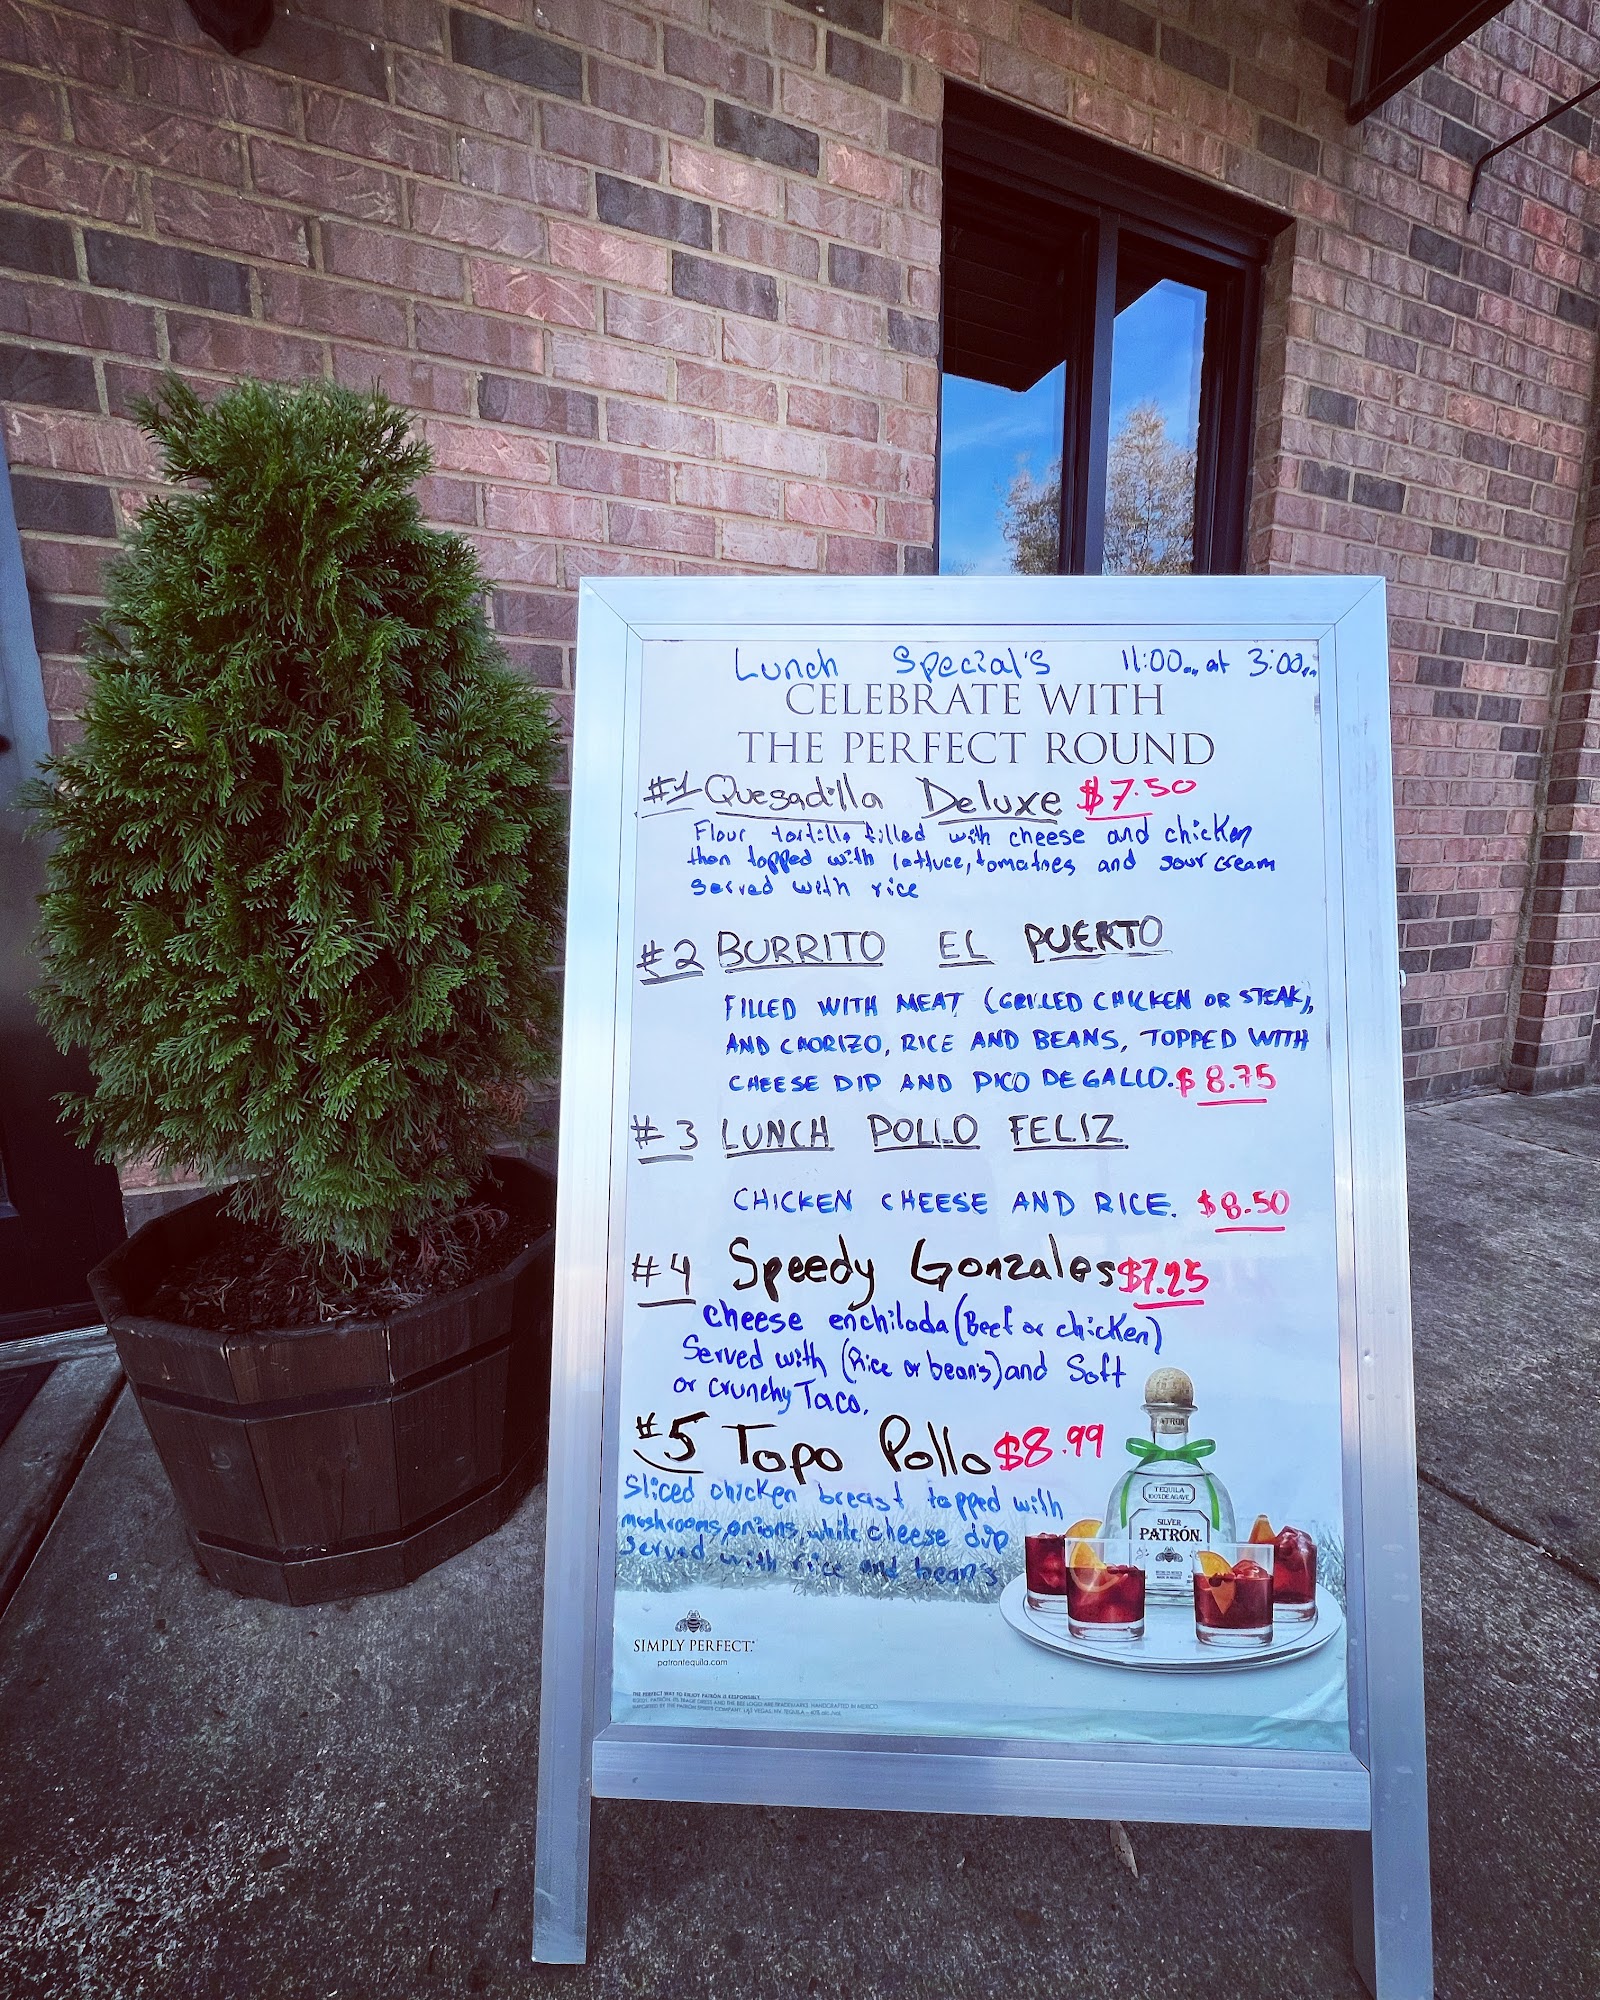 Lunch Special's 11:00am at 3:00pm
CELEBRATE WITH
THE PERFECT ROUND
#1 Quesadilla Deluxe $7.50
Flour tortilla filled with cheese and chicken
then topped with lettuce, tomatoes and sour cream
served with rice
#2 BURRITO EL PUERTO
FILLED WITH MEAT (GRILLED CHICKEN OR STEAK),
AND CHORIZO, RICE AND BEANS, TOPPED WITH
CHEESE DIP AND PICO DE GALLO. $8.75
#3 LUNCH POLLO FELIZ
CHICKEN CHEESE AND RICE. $8.50
#4 Speedy Gonzales $7.25
Cheese enchilada (Beef or chicken)
Served with (Rice or bean's) and Soft
or crunchy Taco.
#5 Tapo Pollo $8.99
Sliced chicken breast topped with
mushrooms, onions, white cheese dip
served with rice and bean's
PATRÓN
TEQUILA
100% DE AGAVE
SILVER
PATRÓN
SIMPLY PERFECT.
patrontequila.com
THE PERFECT WAY TO ENJOY PATRÓN IS RESPONSIBLY.